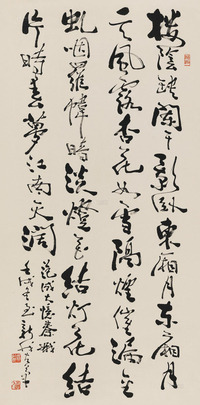 樓陰缺闌干影臥東廂月東廂月
一天風露杏花如雪隔煙催漏金
虬咽羅幃暗淡燈花結灯花結
片時春夢江南天闊
范成大憶秦娥
壬戌冬至新我